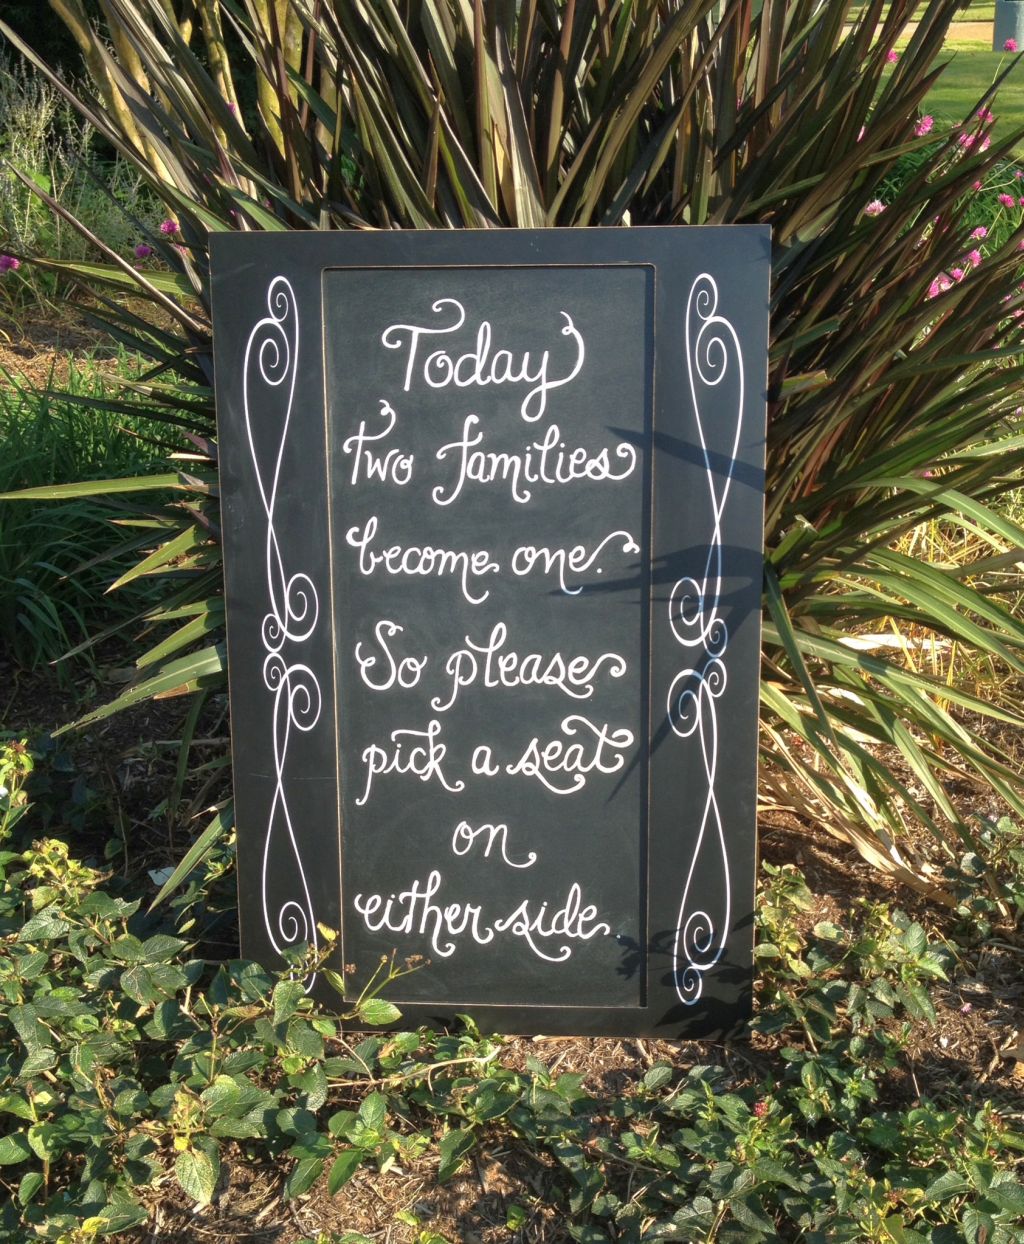 Today
two families
become one.
So please
pick a seat
on
either side.